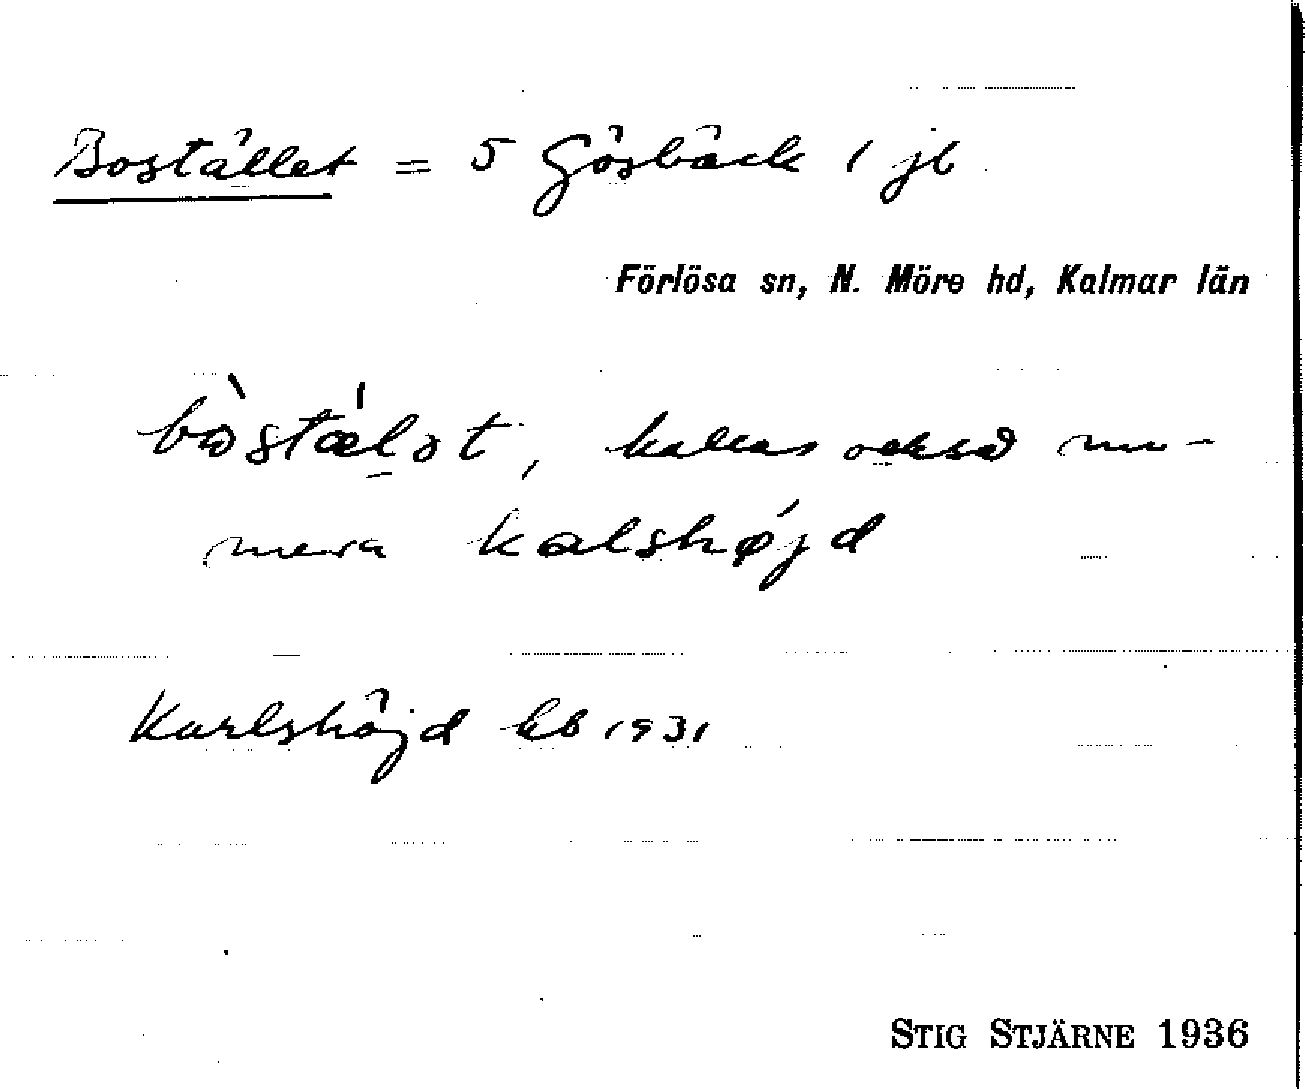 Bostället = 5 Gösbäck 1 jb
Förlösa sn, N. Möre hd, Kalmar län
bòstǽlət, kallas också nu-
mera kalshøjd
Karlshöjd kb 1931
STIG STJÄRNE 1936